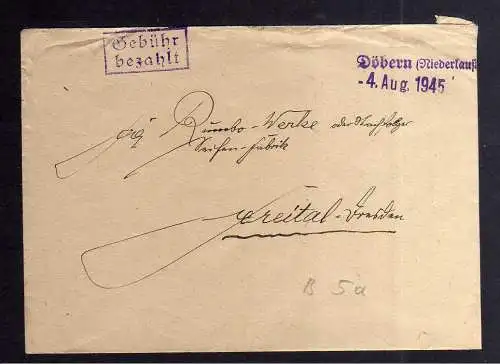 Gebühr
bezahlt
Döbern (Niederlaus
-4. Aug. 1945
Rumbo-Werke oder Nachfolger
Seifen-Fabrik
Freital-Dresden
B 5a